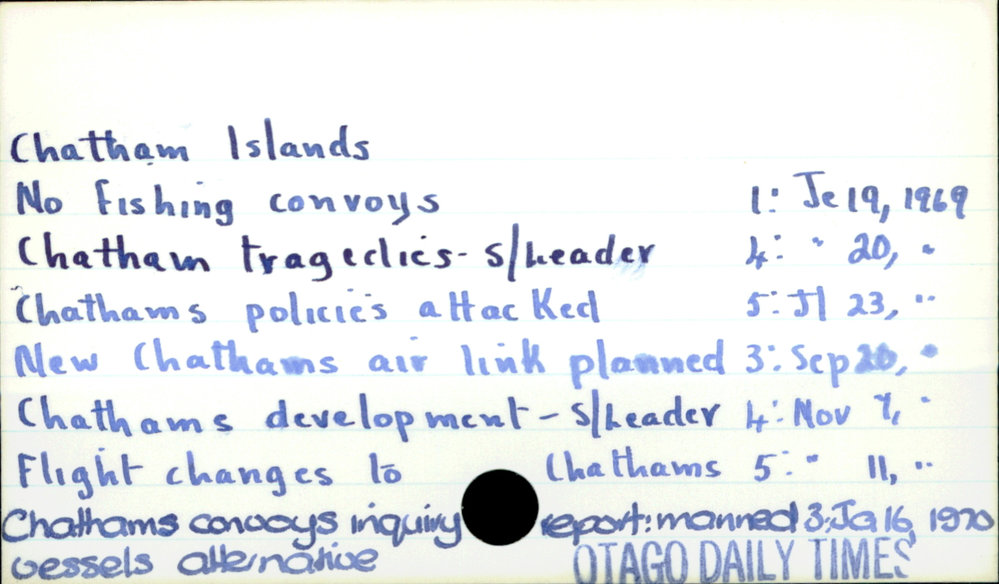 Chatham Islands
No Fishing convoys 1: Je 19, 1969
Chatham tragedies- S/Leader 4: " 20, "
Chathams policies attacked 5: Jl 23, "
New Chathams air link planned 3: Sep 20, "
Chathams development - S/Leader 4: Nov 7, "
Flight changes to Chathams 5: " 11, "
Chathams convoys inquiry report: manned 3: Ja 16, 1970
vessels alternative OTAGO DAILY TIMES